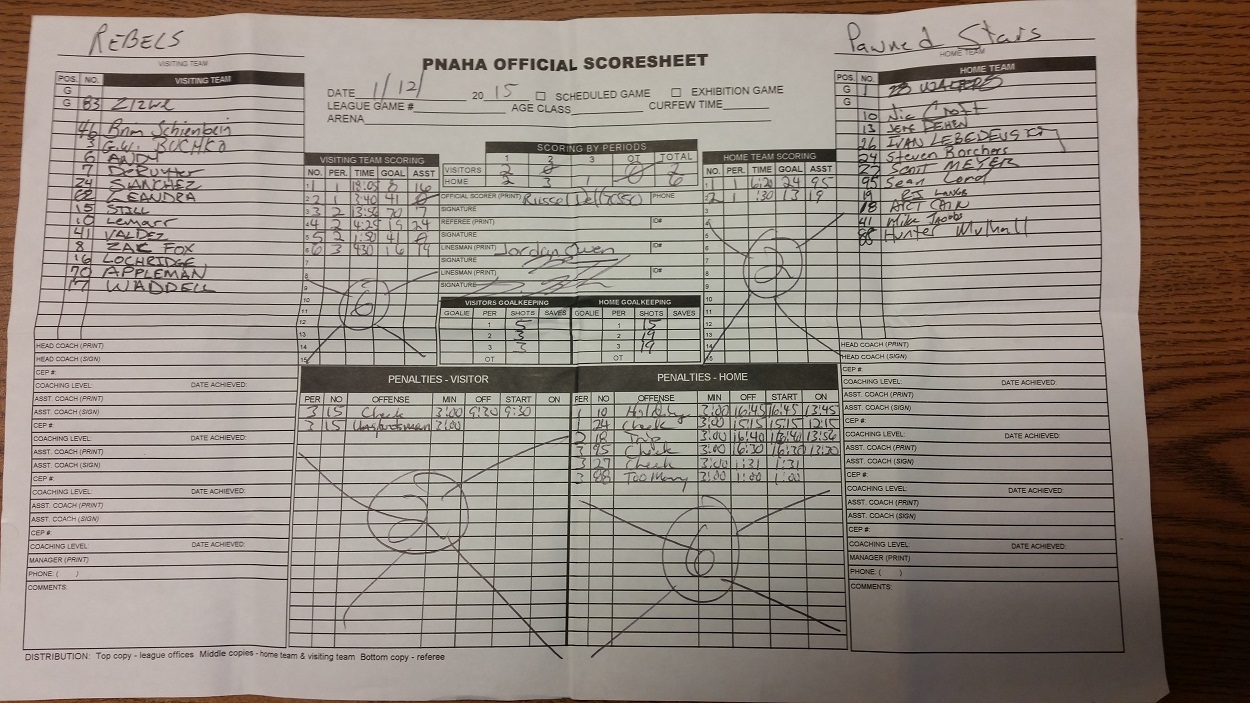 REBELS
VISITING TEAM
PNAHA OFFICIAL SCORESHEET
Pawned Stars
HOME TEAM
DATE 1/12/ 2015 SCHEDULED GAME EXHIBITION GAME
LEAGUE GAME # AGE CLASS CURFEW TIME
ARENA
POS. NO. VISITING TEAM
G
G 83
46 Brin Schienbein
3 G.W. BUCHKO
6 ANDY
7 DeRuyter
24 SANCHEZ
LEANDRA
15 STILL
10 Lemarr
41 VALDEZ
8 ZAK FOX
16 LOCHRIDGE
70 APPLEMAN
17 WADDELL
SCORING BY PERIODS
1 2 3 OT TOTAL
VISITORS 2 0 0 2
HOME 2 3 1 6
VISITING TEAM SCORING
NO. PER. TIME GOAL ASST
1 1 18:05 8 16
2 1 3:40 41
3 2 13:56 70 7
4 2 4:29 19 24
5 2 1:50 41
6 3 4:30 16 19
7
8
9
10
11
12
13
14
15
6
OFFICIAL SCORER (PRINT) PHONE
SIGNATURE
REFEREE (PRINT) ID#
SIGNATURE
LINESMAN (PRINT) Jordan Owen ID#
SIGNATURE
LINESMAN (PRINT) ID#
SIGNATURE
VISITORS GOALKEEPING HOME GOALKEEPING
GOALIE PER SHOTS SAVES GOALIE PER SHOTS SAVES
1 5 1 15
2 3 2 19
3 3 3 19
OT OT
HOME TEAM SCORING
NO. PER. TIME GOAL ASST
1 1 6:20 24 95
2 1 :30 13 19
3
4
5
6
7
8
9
10
11
12
13
14
15
2
POS. NO. HOME TEAM
G 1 WALTERS
G
10 Nic Croft
13 JEFF DEHEN
26 IVAN LEBEDEUSKI
24 Steven Borchers
27 SCOTT MEYER
95 Sean Lord
19 PJ Lange
18 ART CAIN
41 Mike Jacobs
88 Hunter Mulhall
PENALTIES - VISITOR
PER NO OFFENSE MIN OFF START ON
3 15 Check 3:00 9:30 9:30
3 15 Unsportsman 3:00
2
PENALTIES - HOME
PER NO OFFENSE MIN OFF START ON
1 10 Holding 3:00 16:45 16:45 13:45
1 24 Check 3:00 15:15 15:15 12:15
2 18 Trip 3:00 16:40 16:40 13:56
3 95 Check 3:00 16:30 16:30 13:30
3 27 Check 3:00 1:31 1:31
3 88 Too Many 3:00 1:00 1:00
6
HEAD COACH (PRINT)
HEAD COACH (SIGN)
CEP #:
COACHING LEVEL: DATE ACHIEVED:
ASST. COACH (PRINT)
ASST. COACH (SIGN)
CEP #:
COACHING LEVEL: DATE ACHIEVED:
ASST. COACH (PRINT)
ASST. COACH (SIGN)
CEP #:
COACHING LEVEL: DATE ACHIEVED:
ASST. COACH (PRINT)
ASST. COACH (SIGN)
CEP #:
COACHING LEVEL: DATE ACHIEVED:
MANAGER (PRINT)
PHONE: ( )
COMMENTS:
HEAD COACH (PRINT)
HEAD COACH (SIGN)
CEP #:
COACHING LEVEL: DATE ACHIEVED:
ASST. COACH (PRINT)
ASST. COACH (SIGN)
CEP #:
COACHING LEVEL: DATE ACHIEVED:
ASST. COACH (PRINT)
ASST. COACH (SIGN)
CEP #:
COACHING LEVEL: DATE ACHIEVED:
ASST. COACH (PRINT)
ASST. COACH (SIGN)
CEP #:
COACHING LEVEL: DATE ACHIEVED:
MANAGER (PRINT)
PHONE: ( )
COMMENTS:
DISTRIBUTION: Top copy - league offices Middle copies - home team & visiting team Bottom copy - referee